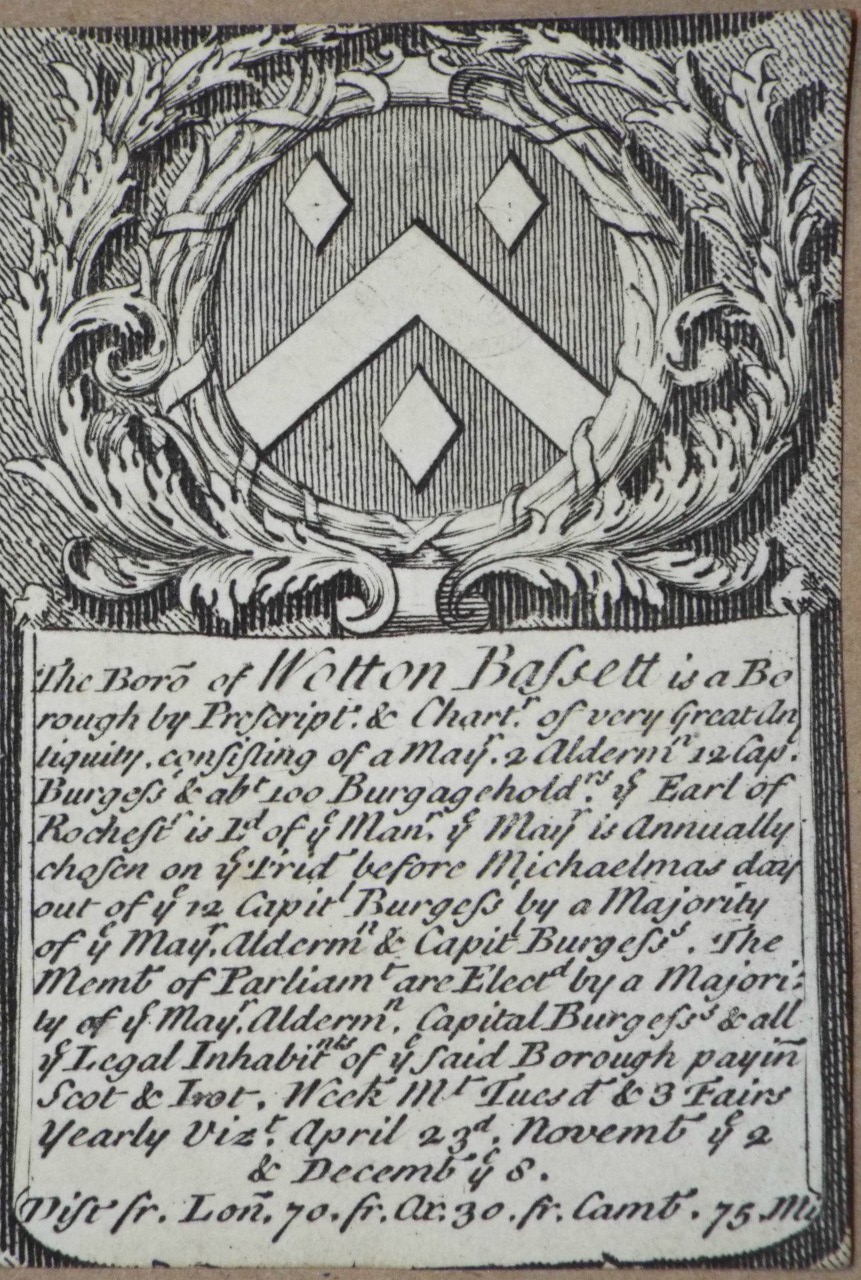 The Boro̅ of Wotton Baſsett is a Bo
rough by Preſcript.ⁿ & Chart.ʳ of very Great An
tiquity, conſiſting of a Mayʳ. 2 Aldermⁿ 12 Cap.
Burgeſsˢ & abᵗ 100 Burgageholdʳˢ. yᵉ Earl of
Rocheſtʳ is Lᵈ of yᵉ Manʳ. yᵉ Mayʳ is Annually
choſen on yᵉ Frid before Michaelmas day
out of yᵉ 12 Capitˡ Burgeſsˢ by a Majority
of yᵉ Mayʳ. Aldermⁿ & Capitˡ Burgeſsˢ. The
Memb of Parliamᵗ are Electᵈ by a Majori-
ty of yᵉ Mayʳ. Aldermⁿ. Capital Burgeſsˢ & all
yᵉ Legal Inhabitⁿᵗˢ of yᵉ ſaid Borough payin̅
Scot & Lot. Week Mᵗ Tuesd & 3 Fairs
Yearly Vizᵗ. April 23ᵈ. Novemb yᵉ 2
& Decemb yᵉ 8.
Diſt fr. Lon̅. 70. fr. Ox. 30. fr. Camb. 75 Mi